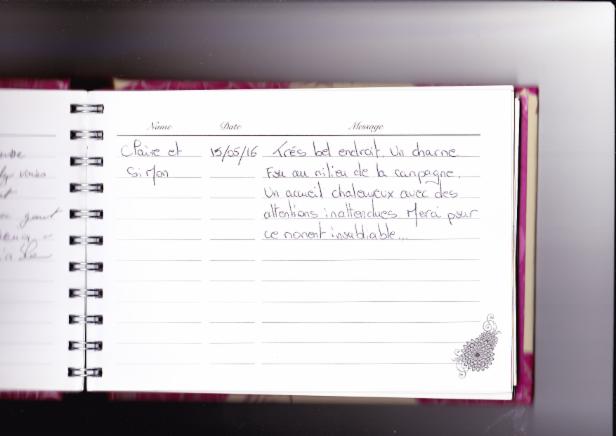 Name Date Message
Claire et 15/05/16 Très bel endroit. Un charme
Simon Fou au milieu de la campagne.
Un accueil chaleureux avec des
attentions inattendues Merci pour
ce moment inoubliable...